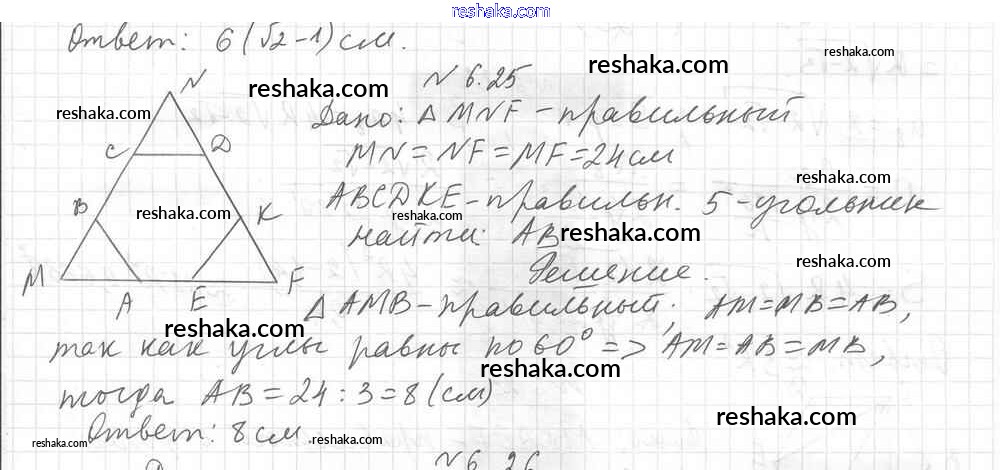 reshaka.com
Ответ: 6(√2-1) см.
reshaka.com
reshaka.com
N 6.25
reshaka.com
N
reshaka.com
Дано: △ MNF - правильный
C D
MN = NF = MF = 24 см
reshaka.com
ABCDKE - правильн. 5-угольник
B reshaka.com K
reshaka.com
найти: AB
reshaka.com
Решение.
reshaka.com
M F
A E
△ AMB - правильный, AM = MB = AB,
reshaka.com
reshaka.com
так как углы равны по 60° => AM = AB = MB,
reshaka.com
reshaka.com
тогда AB = 24 : 3 = 8 (см)
reshaka.com
Ответ: 8 см.
reshaka.com
reshaka.com
N 6.26